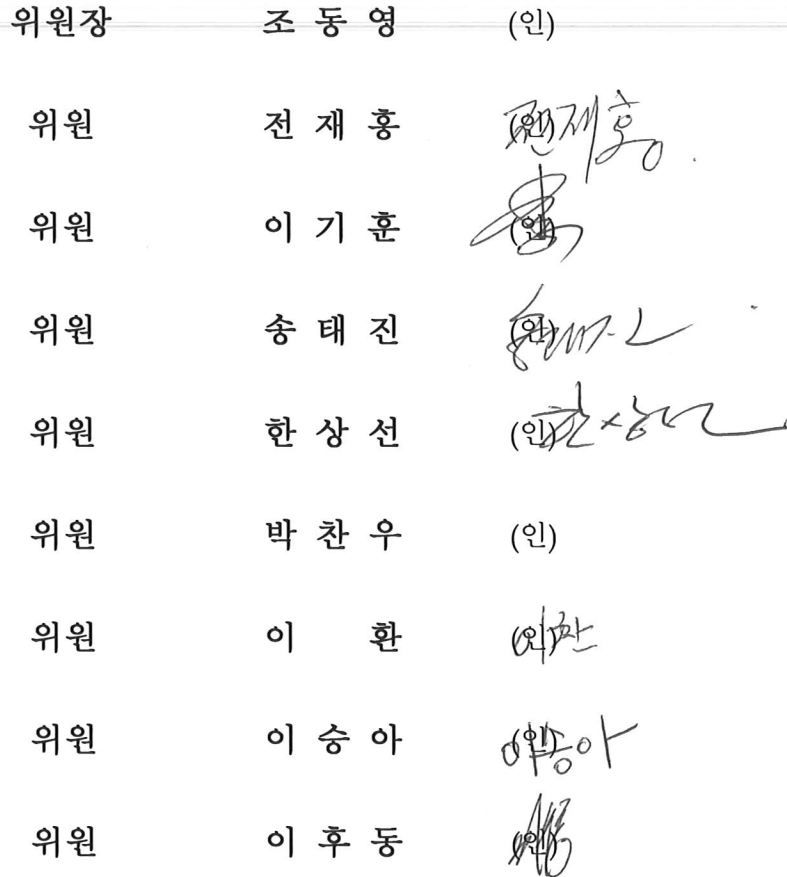 위원장 조 동 영 (인)
위원 전 재 홍 (인) 전재홍
위원 이 기 훈 (인)
위원 송 태 진 (인) 송태진
위원 한 상 선 (인) 한상선
위원 박 찬 우 (인)
위원 이 환 (인) 이환
위원 이 승 아 (인) 이승아
위원 이 후 동 (인)